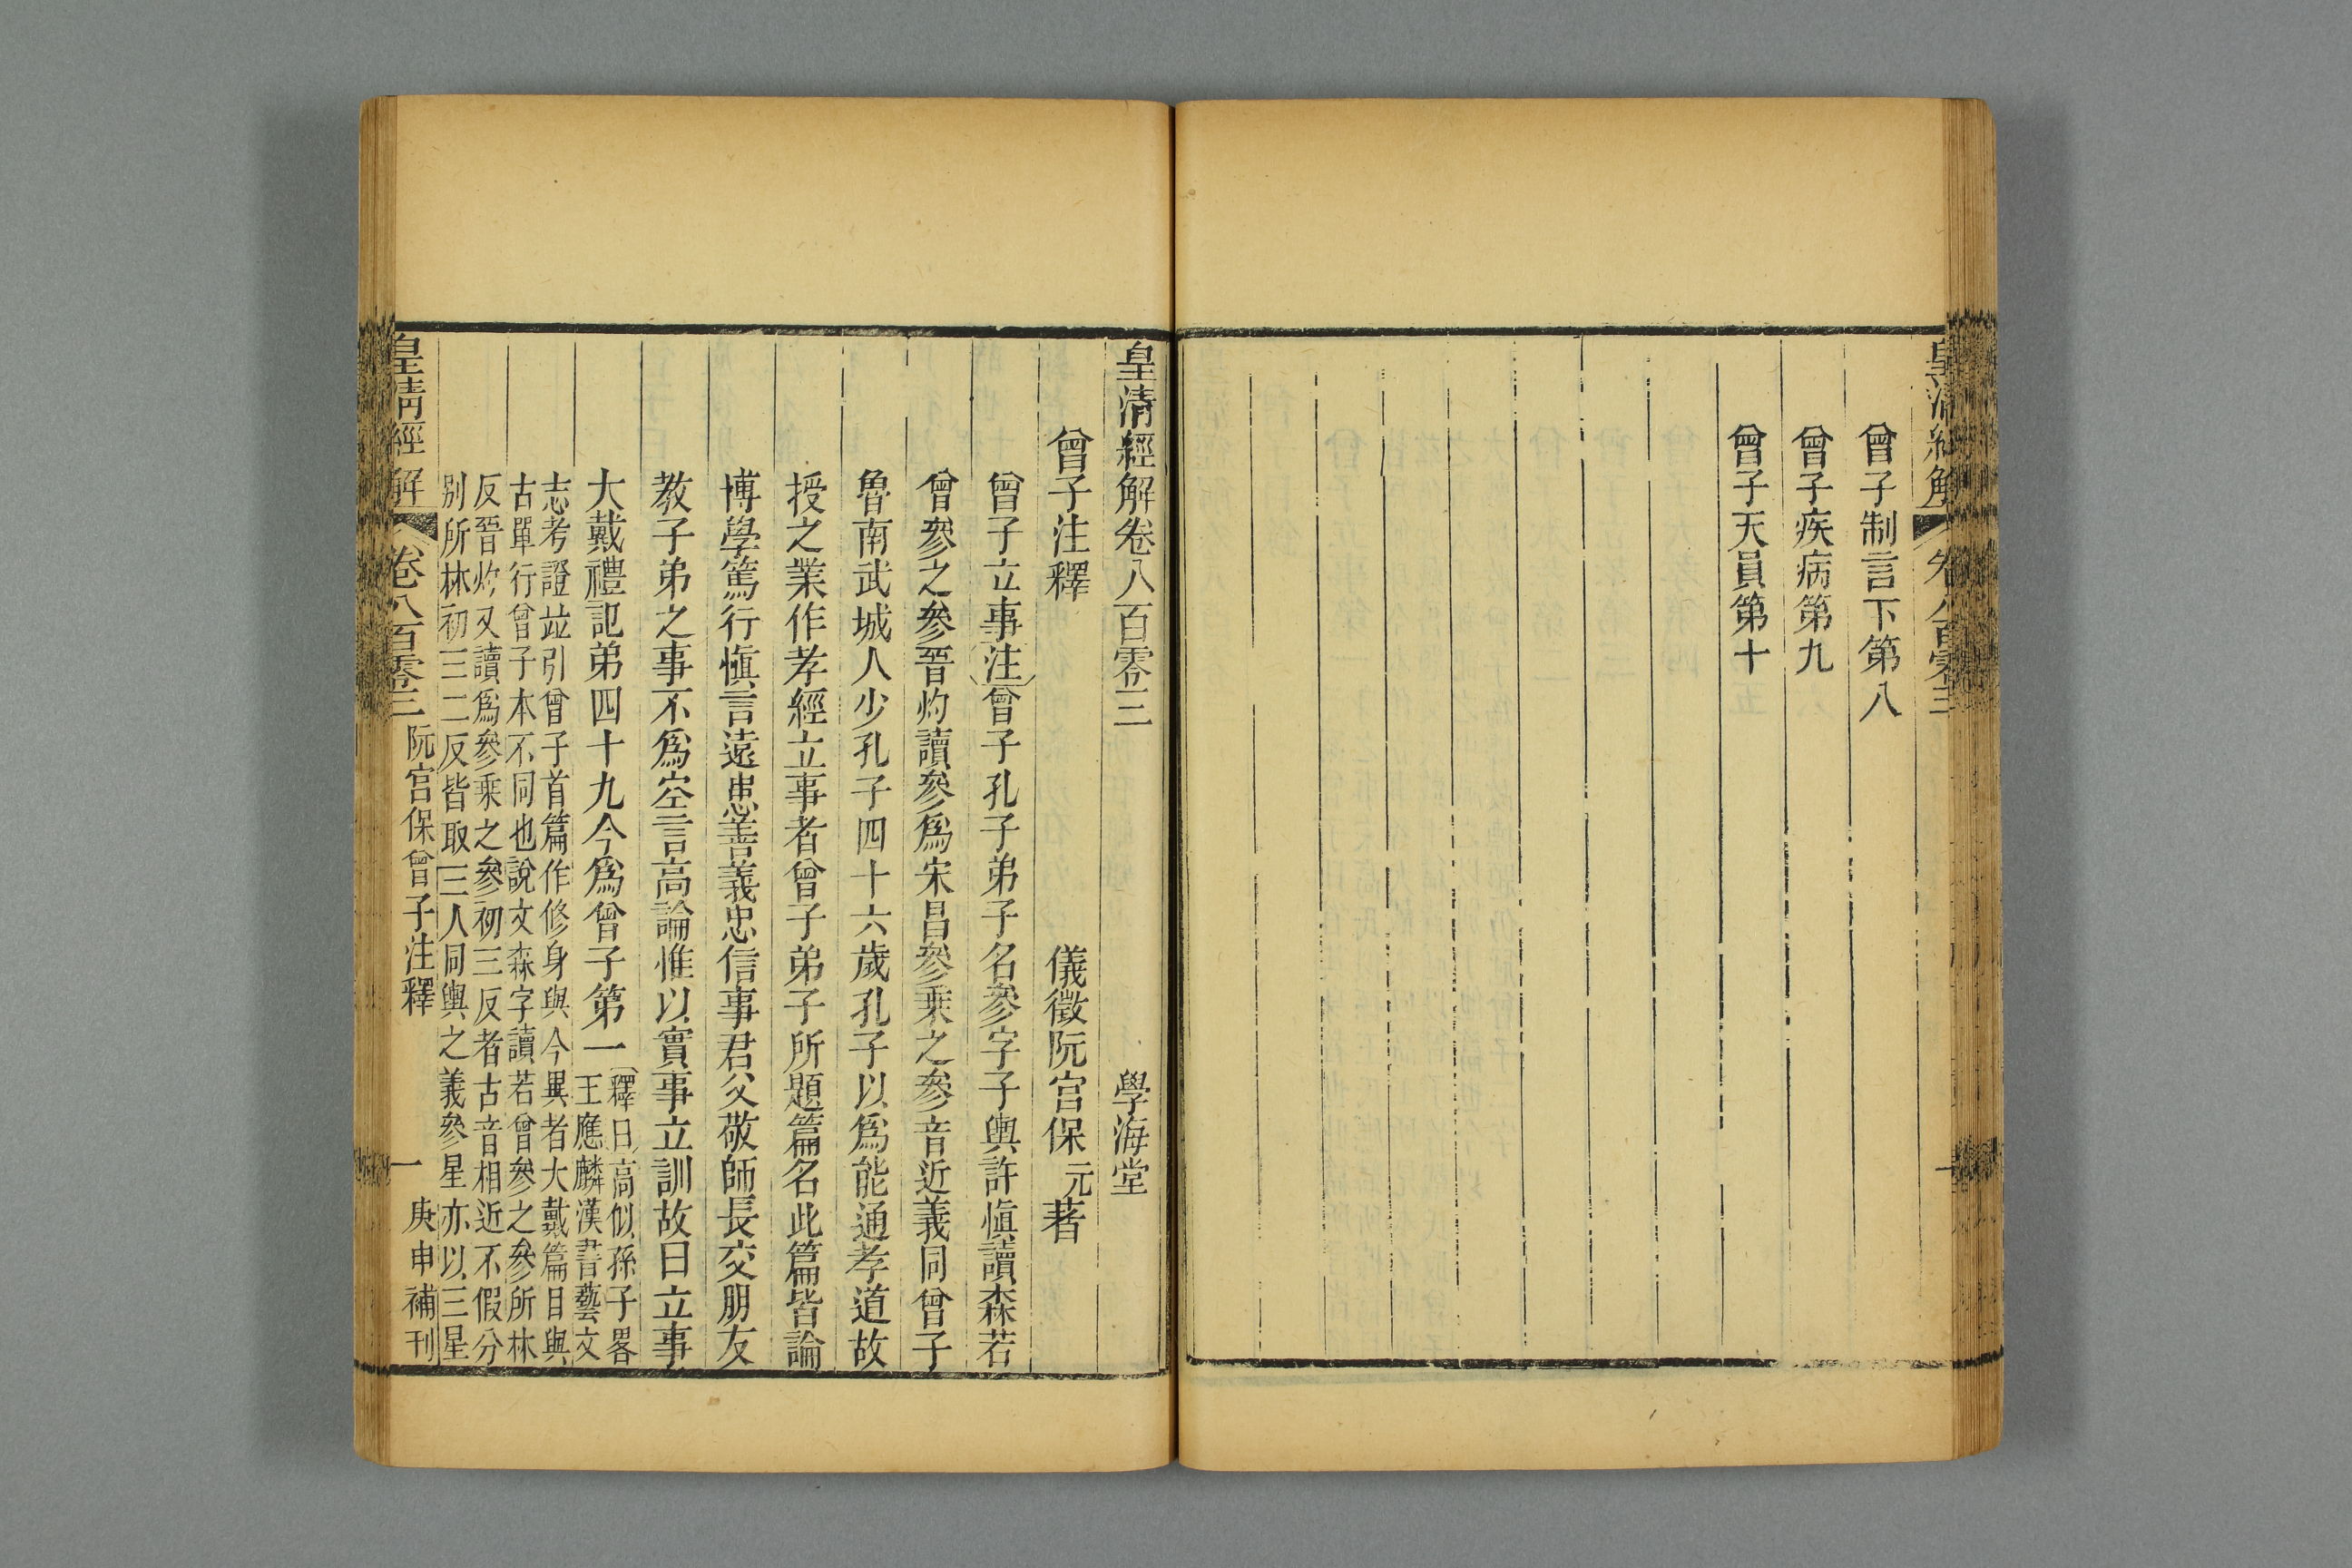 皇清經解
卷八百零三
曾子制言下第八
曾子疾病第九
曾子天員第十
皇清經解卷八百零三
學海堂
曾子注釋
儀徵阮宮保元著
曾子立事注曾子孔子弟子名參字子輿許愼讀森若
曾參之參晉灼讀參爲宋昌參乘之參音近義同曾子
魯南武城人少孔子四十六歲孔子以爲能通孝道故
授之業作孝經立事者曾子弟子所題篇名此篇皆論
博學篤行愼言遠患善義忠信事君父敬師長交朋友
教子弟之事不爲空言高論惟以實事立訓故曰立事
大戴禮記弟四十九今爲曾子第一
釋曰高似孫子畧
王應麟漢書藝文
志考證竝引曾子首篇作修身與今異者大戴篇目與
古單行曾子本不同也說文森字讀若曾參之參所林
反晉灼又讀爲參乘之參初三反者古音相近不假分
别所林初三二反皆取三人同輿之義參星亦以三星
皇清經解
卷八百零三
阮宮保曾子注釋
一
庚申補刊